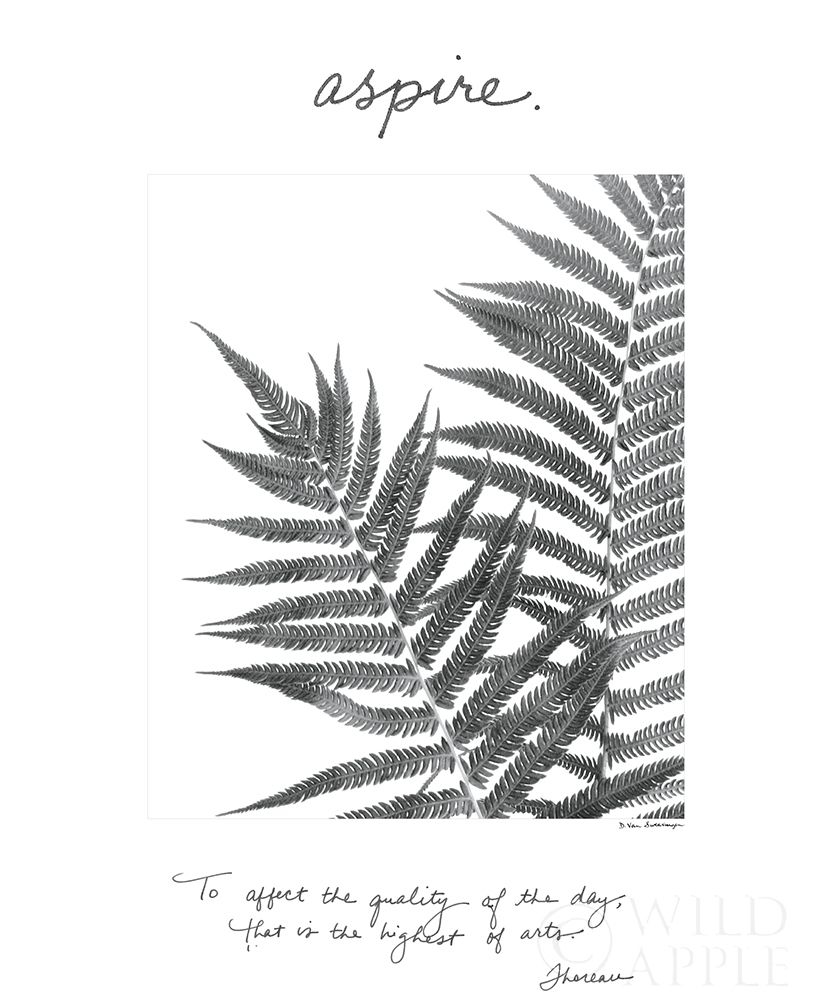 aspire.
D. Van
To affect the quality of the day,
that is the highest of arts.
Thoreau
© WILD
APPLE